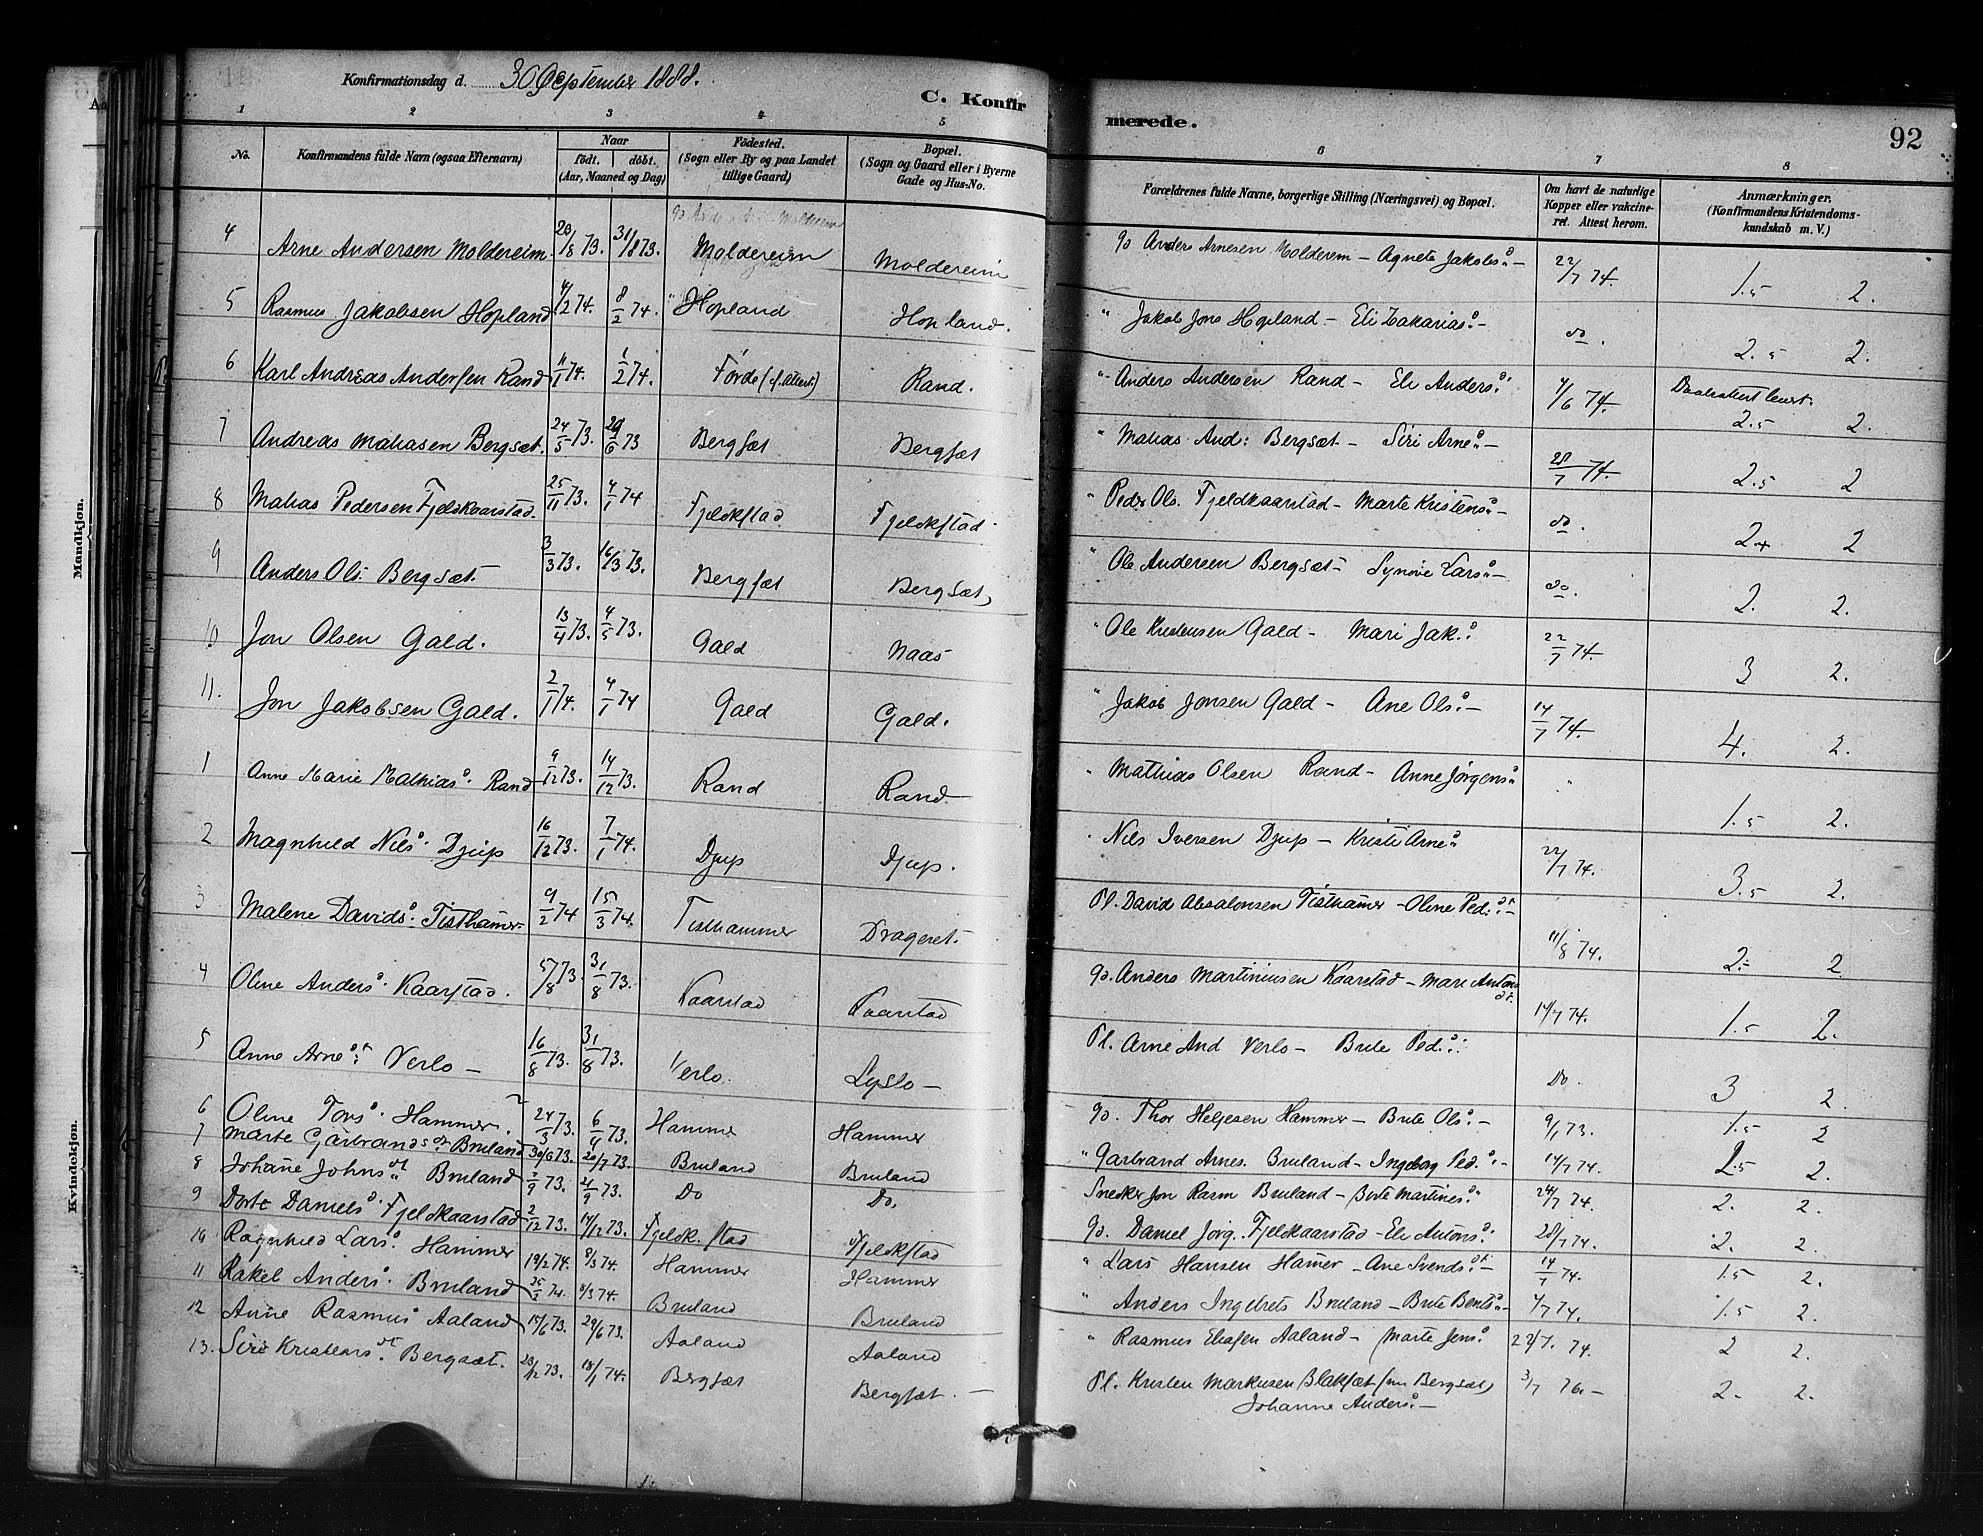 Konfirmationsdag d. 30 September 1888.
C. Konfirmerede.
92
1 2 3 4 5 6 7 8
No.
Konfirmandens fulde Navn (ogsaa Efternavn)
Naar
födt. döbt.
(Aar, Maaned og Dag)
Födested.
(Sogn eller By og paa Landet
tillige Gaard)
Bopæl.
(Sogn og Gaard eller i Byerne
Gade og Hus-No.
Forældrenes fulde Navne, borgerlige Stilling (Næringsvei) og Bopæl.
Om havt de naturlige
Kopper eller vakcine-
ret. Attest herom.
Anmærkninger.
(Konfirmandens Kristendoms-
kundskab m. V.)
Mandkjøn.
4 Arne Andersen Moldereim. 20/8 73. 31/8 73. Moldereim Moldereim Gd Anders Arnesen Molderem – Agnete Jakobsd – 22/7 74. 1.5 2.
5 Rasmus Jakobsen Hopland 4/2 74. 8/2 74. Hopland Hopland. " Jakob Jons Hopland – Eli Zakariasd – do. 2.5 2.
6 Karl Andreas Andersen Rand 11/1 74. 1/2 74. Förde Rand. " Anders Andersen Rand – Eli Andersd 4/6 74. 2.5 2.
7 Andreas Matiasen Bergsæt. 24/5 73. 29/6 73 Bergsæt Bergsæt " Matias And: Bergsæt – Siri Arned – 28/7 74. 2.5 2
8 Matias Pedersen Fjeldkaarstad. 25/11 73. 4/1 74 Fjeldkstad Fjeldkstad. " Peder Ols. Fjeldkaarstad – Marte Kristensd – do. 2+ 2
9 Anders Ols. Bergsæt 3/3 73. 16/3 73. Bergsæt Bergsæt " Ole Andersen Bergsæt – Synöve Larsd – do. 2. 2.
10 Jon Olsen Gald. 13/4 73. 4/5 73. Gald Naas " Ole Kristensen Gald – Mari Jak.d 22/7 74. 3 2.
11. Jon Jakobsen Gald. 2/1 74. 4/1 74 Gald Gald. " Jakob Jonsen Gald – Ane Olsd – 14/7 74. 4. 2.
Kvindekjøn.
1 Anne Marie Mathiasd. Rand 9/12 73. 14/12 73. Rand Rand " Mathias Olsen Rand – Anne Jörgensd " 1.5 2.
2 Magnhild Nilsd. Djup 16/12 73. 7/1 74. Djup Djup. " Nils Iversen Djup – Kristi Arned 22/7 74. 3.5 2.
3 Malene Davidsd. Tisthamer 9/2 74 15/3 74. Tisthammer Drageset. Pl. David Absalonsen Tisthamer – Oline Ped.dt – 11/8 74. 2.– 2
4 Oline Andersd. Kaarstad. 5/8 73. 31/8 73. Kaarstad Kaarstad Gd. Anders Martiniusen Kaarstad – Mari Antonsdt. 14/7 74. 1.5 2.
5 Anne Arnedt. Verlo – 16/8 73. 31/8 73. Verlo. Lyslo – Pl. Arne And Verlo – Brite Ped.d. Do. 3 2
6 Oline Torsd. Hammer. 24/3 73. 6/4 73. Hammer Hammer Gd. Thor Heljesen Hammer – Brite Olsd. – 9/1 73. 1.5 2
7 Marte Garbrandsdtr Bruland 30/6 73. 20/7 73. Bruland Bruland " Garbrand Arnes. Bruland – Ingeborg Ped.d. – 14/7 74. 2.5 2.
8 Johane Johnsdt. Bruland 7/9 73. 21/9 73. Do Do. Snedker Jon Rasm Bruland – Berte Martinesd. 24/7 74. 2. 2.
9 Dorte Danielsd. Fjeldkaarstad 2/12 73. 14/12 73. Fjeldk.stad Fjeldkstad Gd. Daniel Jörg. Fjeldkaarstad – Eli Antonsd. 28/7 74. 2. 2.
10 Ragnhild Larsd. Hammer 19/2 74. 8/3 74. Hammer Hammer " Lars Hansen Hamer – Ane Svendsdt. – 14/7 74. 1.5 2.
11 Rakel Andersd. Bruland 25/2 74. 8/3 74. Bruland Bruland " Anders Ingebrets Bruland – Brite Bentsd. – 4/7 74. 1.5 2.
12 Anne Rasmusd Aaland 15/6 73. 29/6 73. Aaland Aaland " Rasmus Eliasen Aaland – Marte Jensd 22/7. 74. 2 2.
13. Siri Kristensdt. Bergsæt. 28/12 73. 18/1 74. Bergsæt Bergsæt. – Pl. Kristen Markusen Blaksæt (nu Bergsæt) 3/7 76. – 2. 2.
Johanne Andersd. –